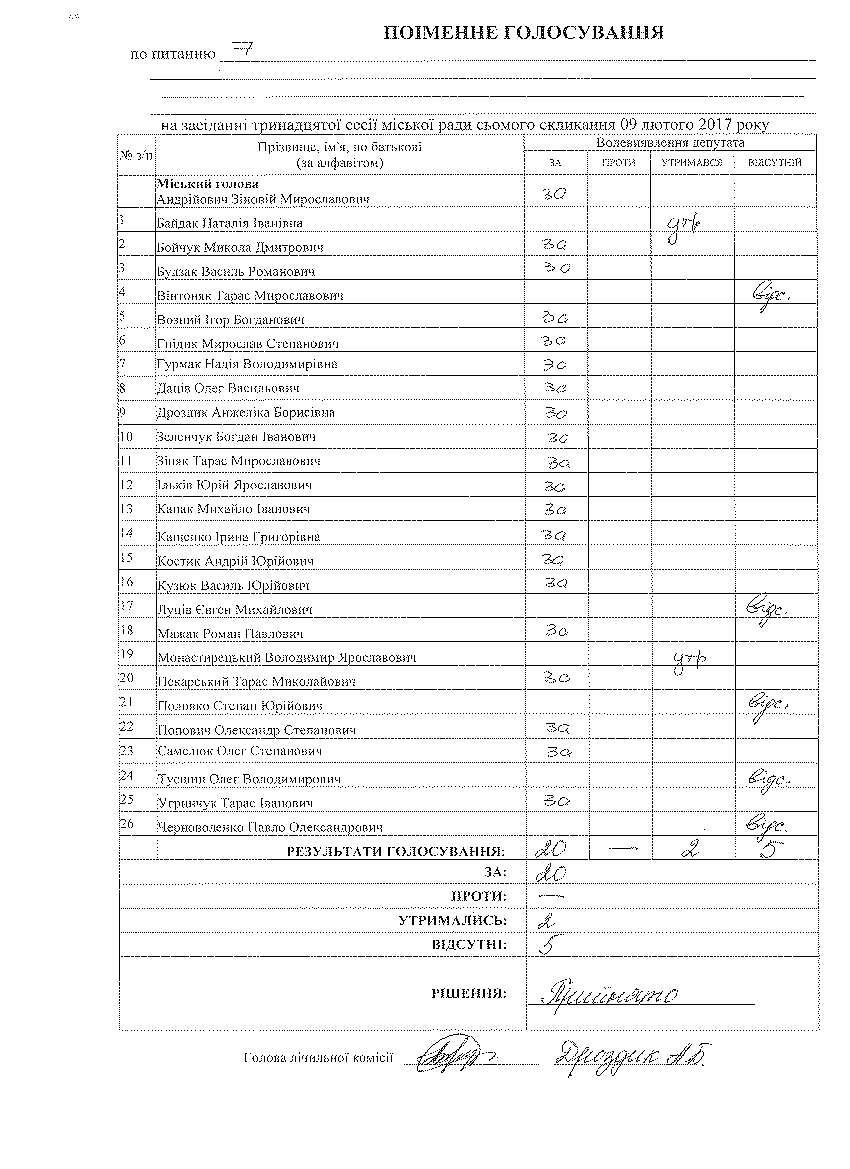 ПОІМЕННЕ ГОЛОСУВАННЯ
по питанню 7
на засіданні тринадцятої сесії міської ради сьомого скликання 09 лютого 2017 року
№ з/п Прізвище, ім'я, по батькові (за алфавітом) Волевиявлення депутата
ЗА ПРОТИ УТРИМАВСЯ ВІДСУТНІЙ
Міський голова
Андрійович Зіновій Мирославович за
1 Байдак Наталія Іванівна утр
2 Бойчук Микола Дмитрович за
3 Будзак Василь Романович за
4 Вінтоняк Тарас Мирославович відс.
5 Возний Ігор Богданович за
6 Гнідик Мирослав Степанович за
7 Гурмак Надія Володимирівна за
8 Даців Олег Васильович за
9 Дроздик Анжеліка Борисівна за
10 Зеленчук Богдан Іванович за
11 Зіняк Тарас Мирославович за
12 Ільків Юрій Ярославович за
13 Капак Михайло Іванович за
14 Кащенко Ірина Григорівна за
15 Костик Андрій Юрійович за
16 Кузюк Василь Юрійович за
17 Луців Євген Михайлович відс.
18 Мажак Роман Павлович за
19 Монастирецький Володимир Ярославович утр
20 Пекарський Тарас Миколайович за
21 Половко Степан Юрійович відс.
22 Попович Олександр Степанович за
23 Самелюк Олег Степанович за
24 Олег Володимирович відс.
25 Угринчук Тарас Іванович за
26 Черноволенко Павло Олександрович відс.
РЕЗУЛЬТАТИ ГОЛОСУВАННЯ: 20 — 2 5
ЗА: 20
ПРОТИ: —
УТРИМАЛИСЬ: 2
ВІДСУТНІ: 5
РІШЕННЯ: Прийнято
Голова лічильної комісії Дроздик А.Б.